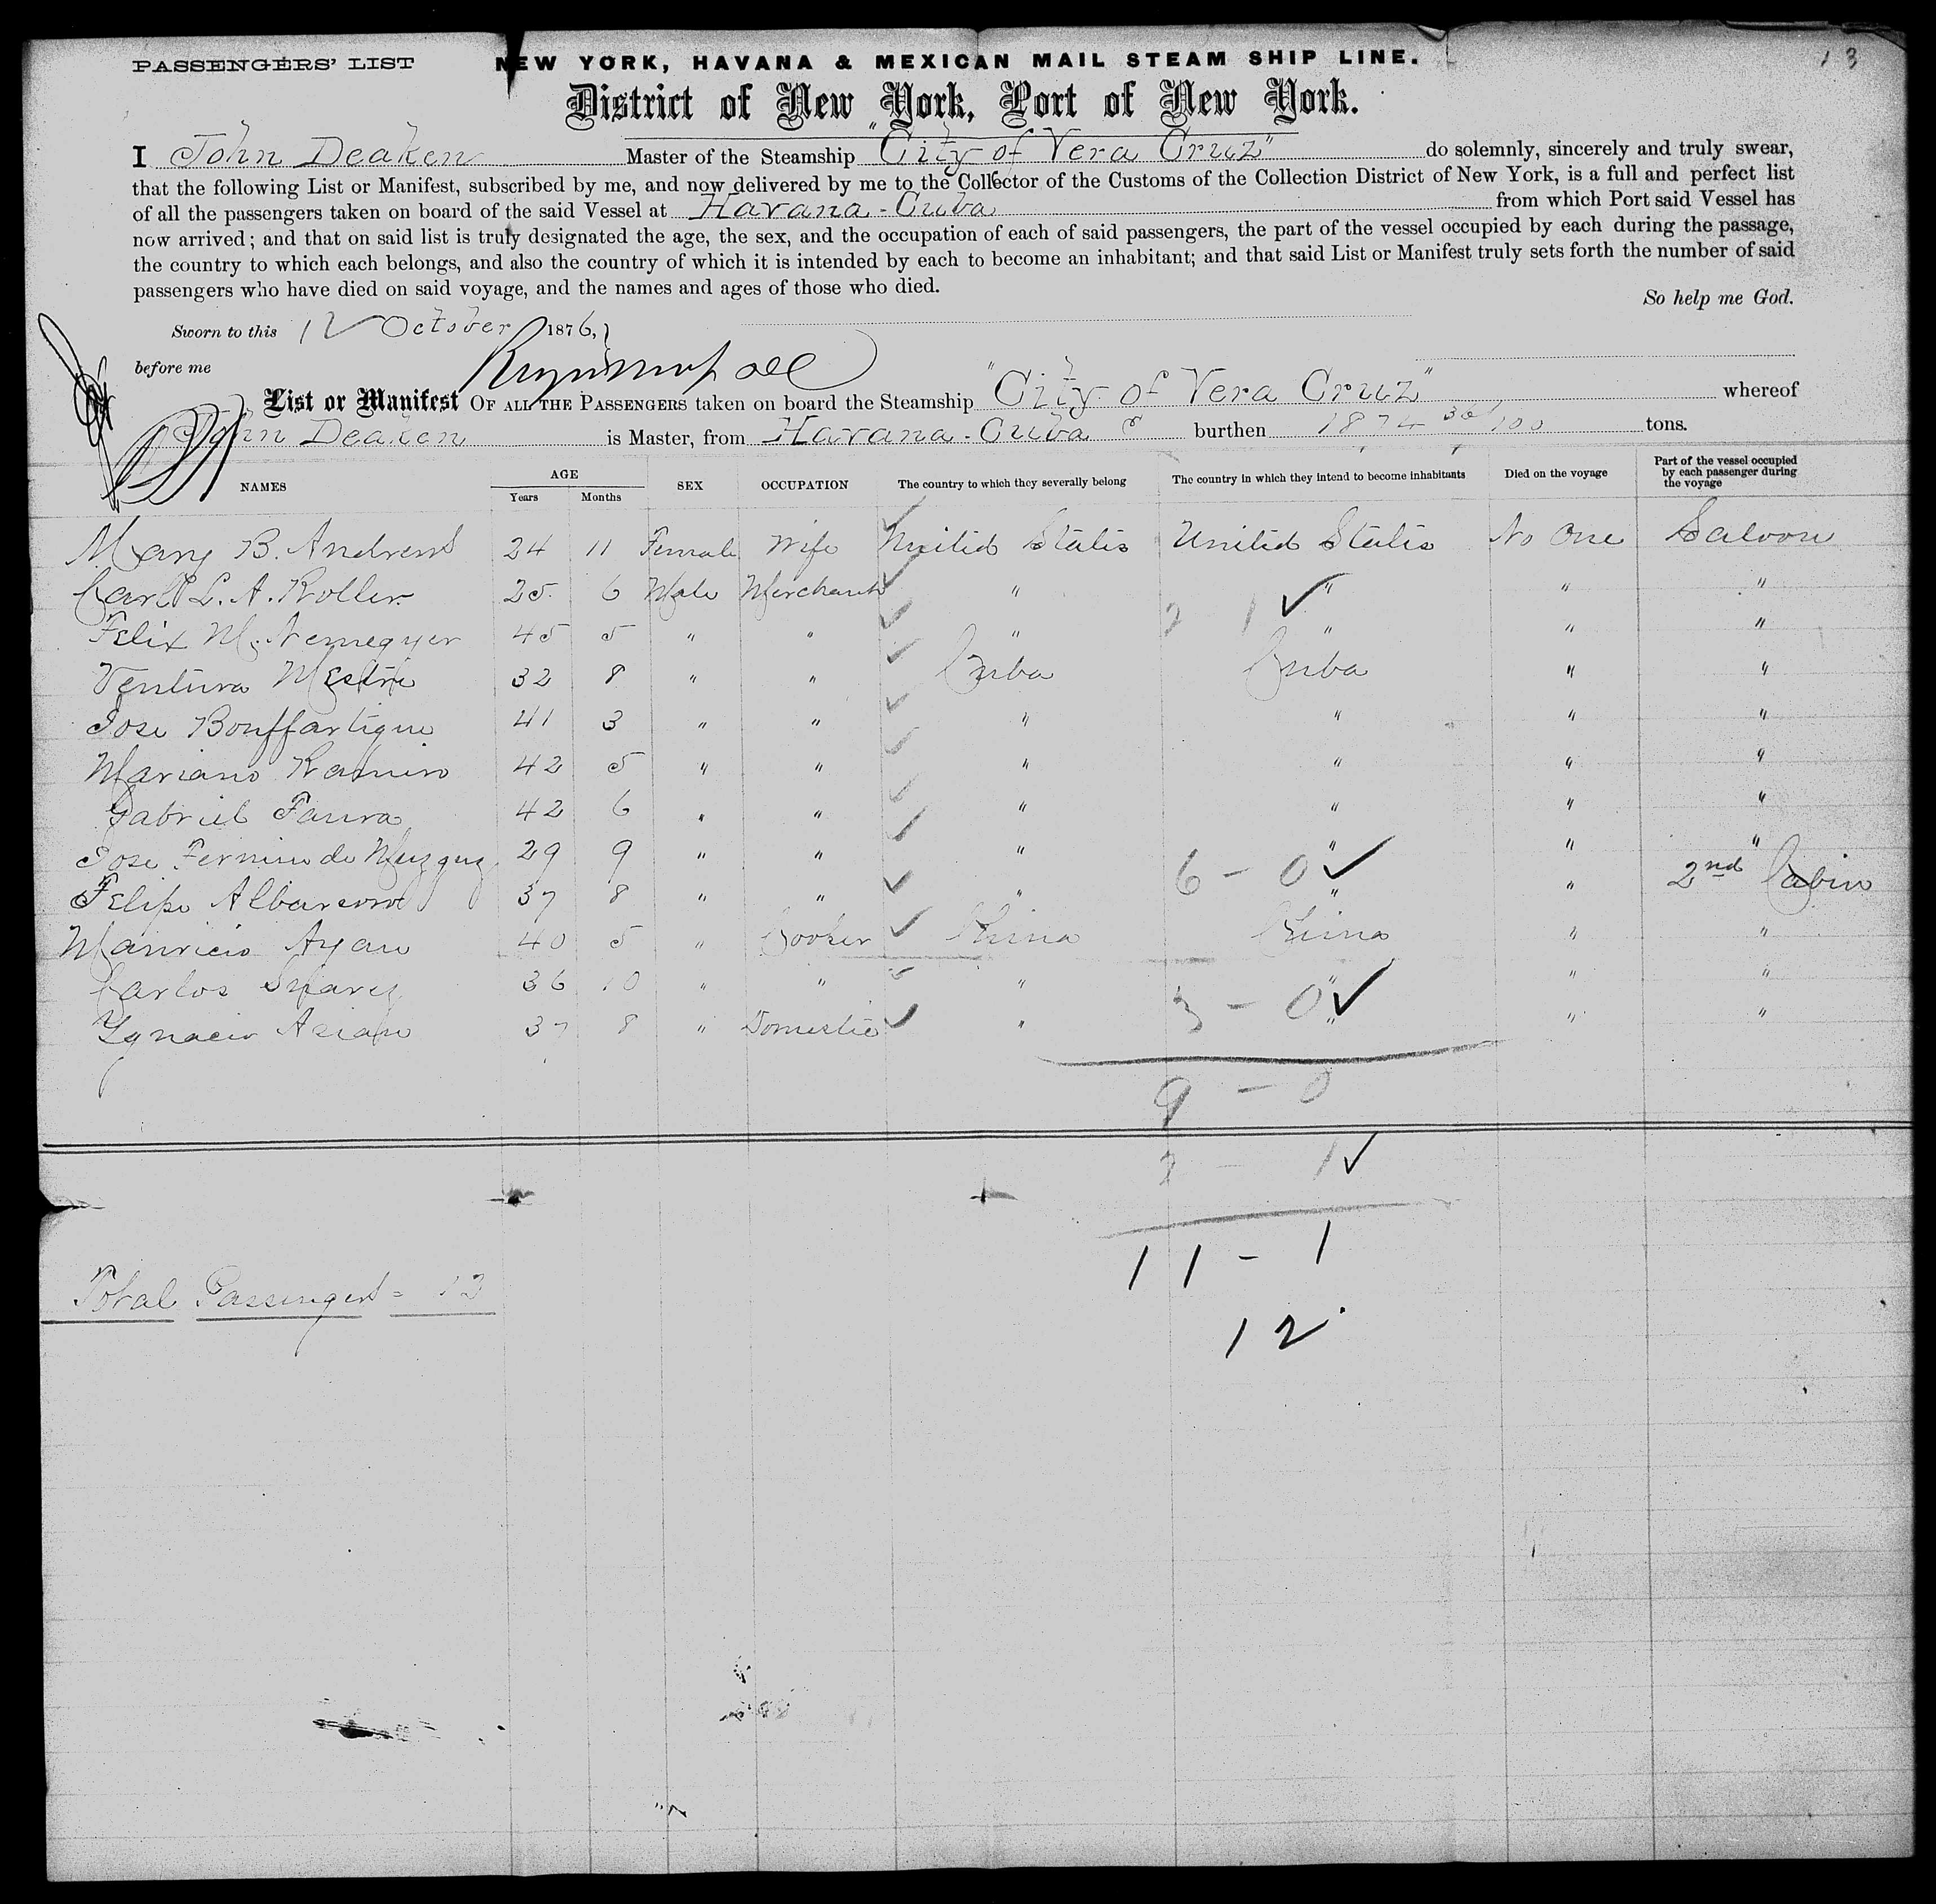 13
PASSENGERS' LIST NEW YORK, HAVANA & MEXICAN MAIL STEAM SHIP LINE.
District of New York, Port of New York.
I John Deaken Master of the Steamship "City of Vera Cruz" do solemnly, sincerely and truly swear,
that the following List or Manifest, subscribed by me, and now delivered by me to the Collector of the Customs of the Collection District of New York, is a full and perfect list
of all the passengers taken on board of the said Vessel at Havana - Cuba from which Port said Vessel has
now arrived; and that on said list is truly designated the age, the sex, and the occupation of each of said passengers, the part of the vessel occupied by each during the passage,
the country to which each belongs, and also the country of which it is intended by each to become an inhabitant; and that said List or Manifest truly sets forth the number of said
passengers who have died on said voyage, and the names and ages of those who died.
So help me God.
Sworn to this 12 October 1876,
before me
List or Manifest OF ALL THE PASSENGERS taken on board the Steamship "City of Vera Cruz" whereof
John Deaken is Master, from Havana - Cuba burthen 1874 tons.
NAMES AGE Years Months SEX OCCUPATION The country to which they severally belong The country in which they intend to become inhabitants Died on the voyage Part of the vessel occupied by each passenger during the voyage
Mary B. Andrews 24 11 Female Wife United States United States No One Saloon
Carl L. A. Roller 25 6 Male Merchant " " " "
2 1 ✓
Felix M. Nemegyer 45 5 " " " " " "
Ventura Mestre 32 8 " " Cuba Cuba " "
Jose Bouffartigue 41 3 " " " " " "
Mariano Ramiro 42 5 " " " " " "
Gabriel Faura 42 6 " " " " " "
Jose Fermin de Muzquiz 29 9 " " " " " "
6 - 0 ✓
Felipe 37 8 " " " " " 2nd Cabin
Mauricio Ayau 40 5 " Cooker China China " "
Carlos Suarez 36 10 " " " " " "
3 - 0 ✓
Ygnacio Asian 37 8 " Domestic " " " "
9 - 0
2 - 1 ✓
11 - 1
Total Passengers = 13
12